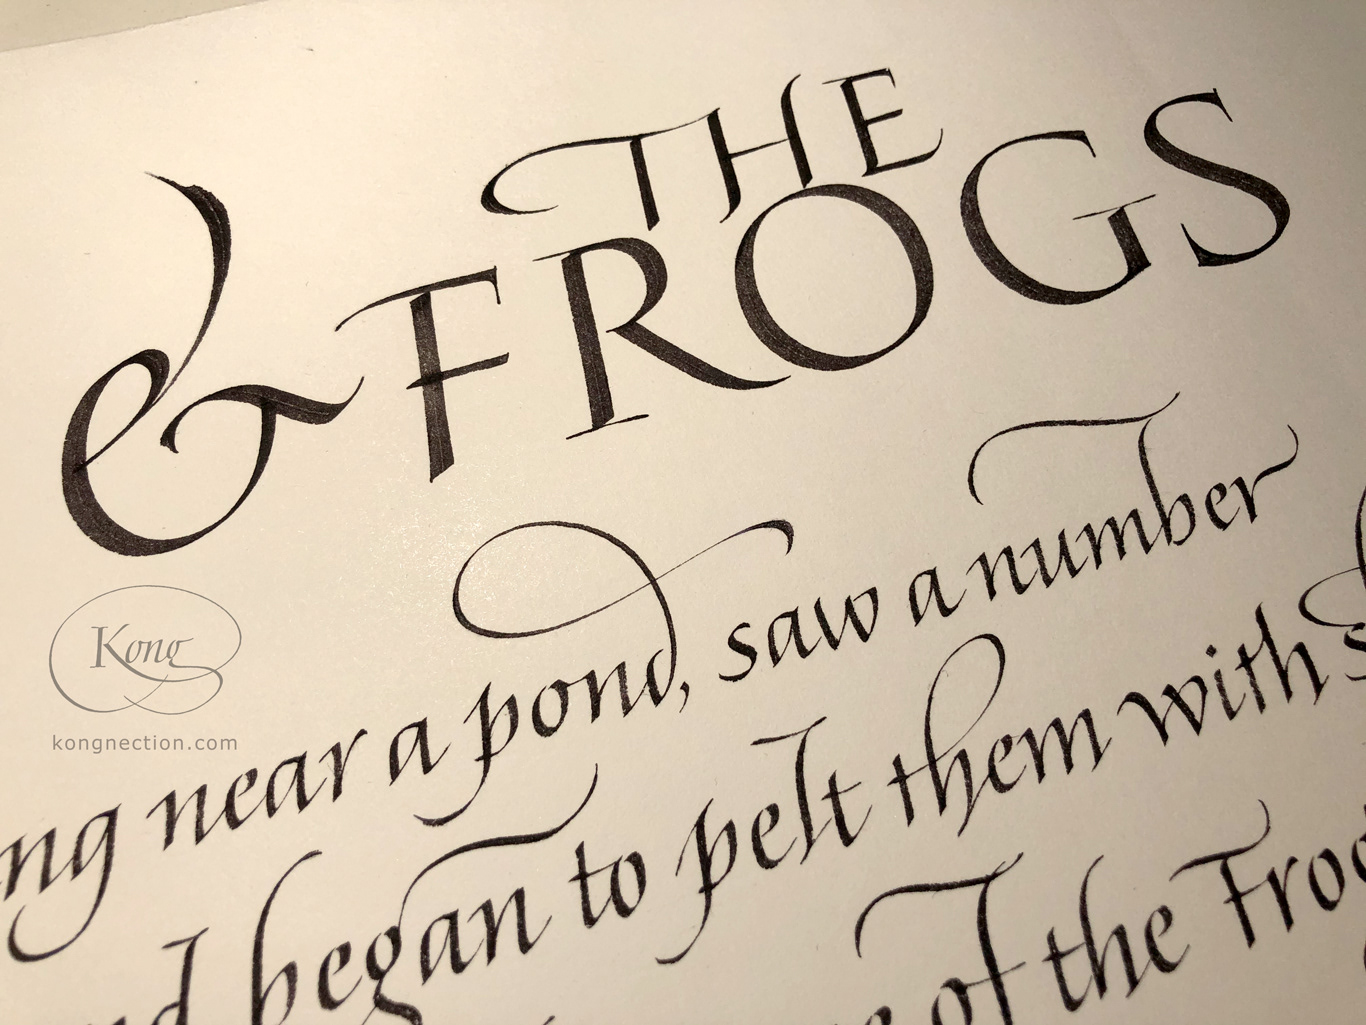 & THE
FROGS
near a pond, saw a number
began to pelt them with
of the
Kong
kongnection.com